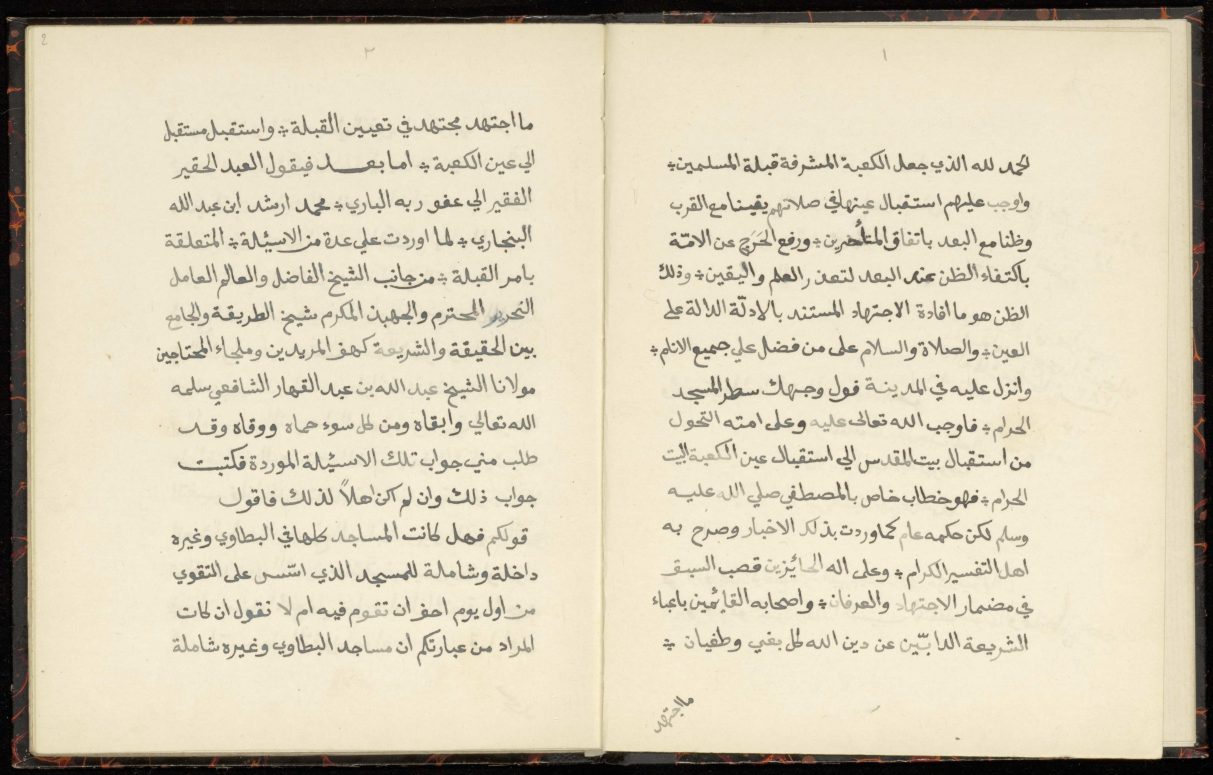 ١
الحمد لله الذي جعل الكعبة المشرفة قبلة المسلمين ؞
واوجب عليهم استقبال عينها في صلاتهم يقينا مع القرب
وظنا مع البعد باتفاق المتأخرين ؞ ورفع الحَرَج عن الامّة
باكتفاء الظن عند البعد لتعذر العلم واليقين ؞ وذلك
الظن هو ما افادة الاجتهاد المستند بالادلّة الدالة على
العين ؞ والصلاة والسلام على من فضل علي جميع الانام ؞
وانزل عليه في المدينة فول وجهك سطر المسجد
الحرام ؞ فاوجب الله تعالى عليه وعلى امته التحول
من استقبال بيت المقدس الي استقبال عين الكعبة البيت
الحرام ؞ فهو خطاب خاص بالمصطفي صلي الله عليه
وسلم لكن حكمه عام كما وردت بذلك الاخبار وصرح به
اهل التفسير الكرام ؞ وعلى اله الحائزين قصب السبق
في مضمار الاجتهاد والعرفان ؞ واصحابه القائمين باعباء
الشريعة الدابّين عن دين الله كل بغي وطغيان ؞
ما اجتهد
2
٢
ما اجتهد مجتهد في تعيين القبلة ؞ واستقبل مستقبل
الي عين الكعبة ؞ اما بعد فيقول العبد الحقير
الفقير الي عفو ربه الباري ؞ محمد ارشد ابن عبد الله
البنجاري ؞ لما اوردت علي عدة من الاسئلة ؞ المتعلقة
بامر القبلة ؞ من جانب الشيخ الفاضل والعالم العامل
النحرير المحترم والجهبذ المكرم شيخ الطريقة والجامع
بين الحقيقة والشريعة كهف المريدين وملجاء المحتاجين
مولانا الشيخ عبد الله بن عبد القهار الشافعي سلمه
الله تعالي وابقاه ومن كل سوء حماه ووقاه وقد
طلب مني جواب تلك الاسئلة الموردة فكتبت
جواب ذلك وان لم اكن اهلاً لذلك فاقول
قولكم فهل كانت المساجد كلها في البطاوي وغيره
داخلة وشاملة للمسجد الذي اسّس على التقوي
من اول يوم احق ان تقوم فيه ام لا نقول ان كات
المراد من عبارتكم ان مساجد البطاوي وغيره شاملة